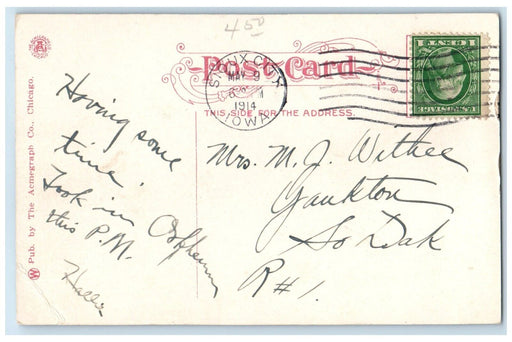 450
Post Card
THIS SIDE FOR THE ADDRESS.
SIOUX CITY
MAY 9
1914
IOWA
Pub. by The Acmegraph Co., Chicago.
Having some
time.
Took in Orpheum
this P.M.
Hallie
Mrs. M. J. Withee
Yankton
So Dak
R#1.